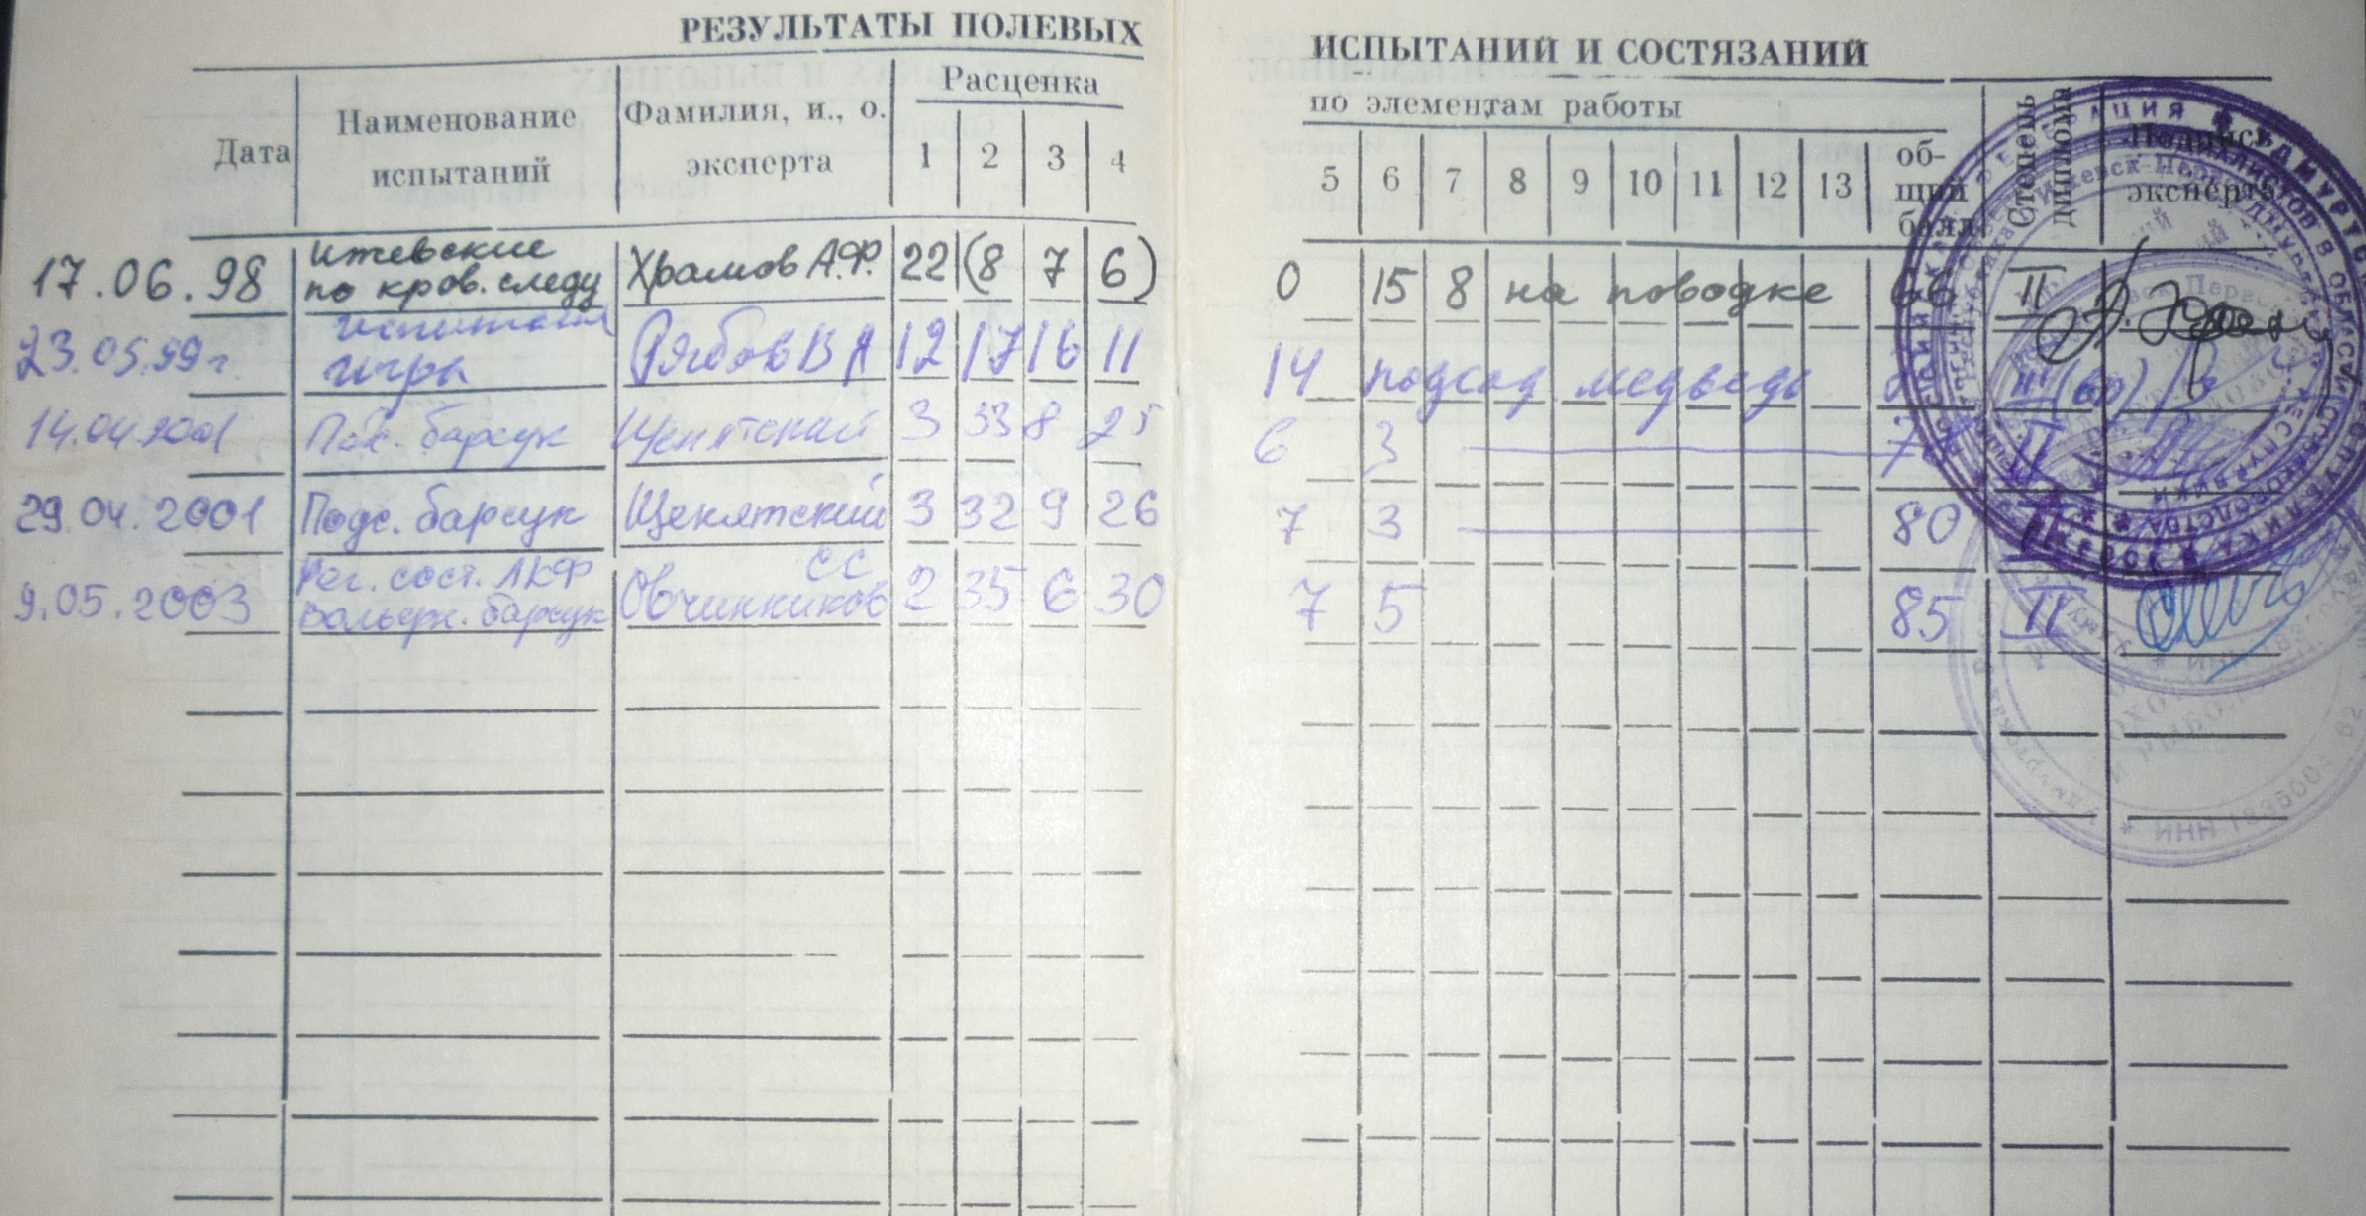 РЕЗУЛЬТАТЫ ПОЛЕВЫХ ИСПЫТАНИЙ И СОСТЯЗАНИЙ
Дата
Наименование
испытаний
Фамилия, и., о.
эксперта
Расценка по элементам работы
1 2 3 4 5 6 7 8 9 10 11 12 13
об-
щий
балл
Степень
диплома
Подпись
эксперта
17.06.98 Ижевские по кров. следу Храмов А.Ф. 22 (8 7 6) 0 15 8 на поводке 66 II
23.05.99г. игры Рябов В А 12 17 16 11 14 подсад медведь III (вр)
14.04.2001 барсук Щенятский 3 33 8 25 6 3 II
29.04.2001 Подс. барсук Щенятский 3 32 9 26 7 3 80 II
9.05.2003 Рег. сост. АКФ вольерн. барсук Овчинников СС 2 35 6 30 7 5 85 II